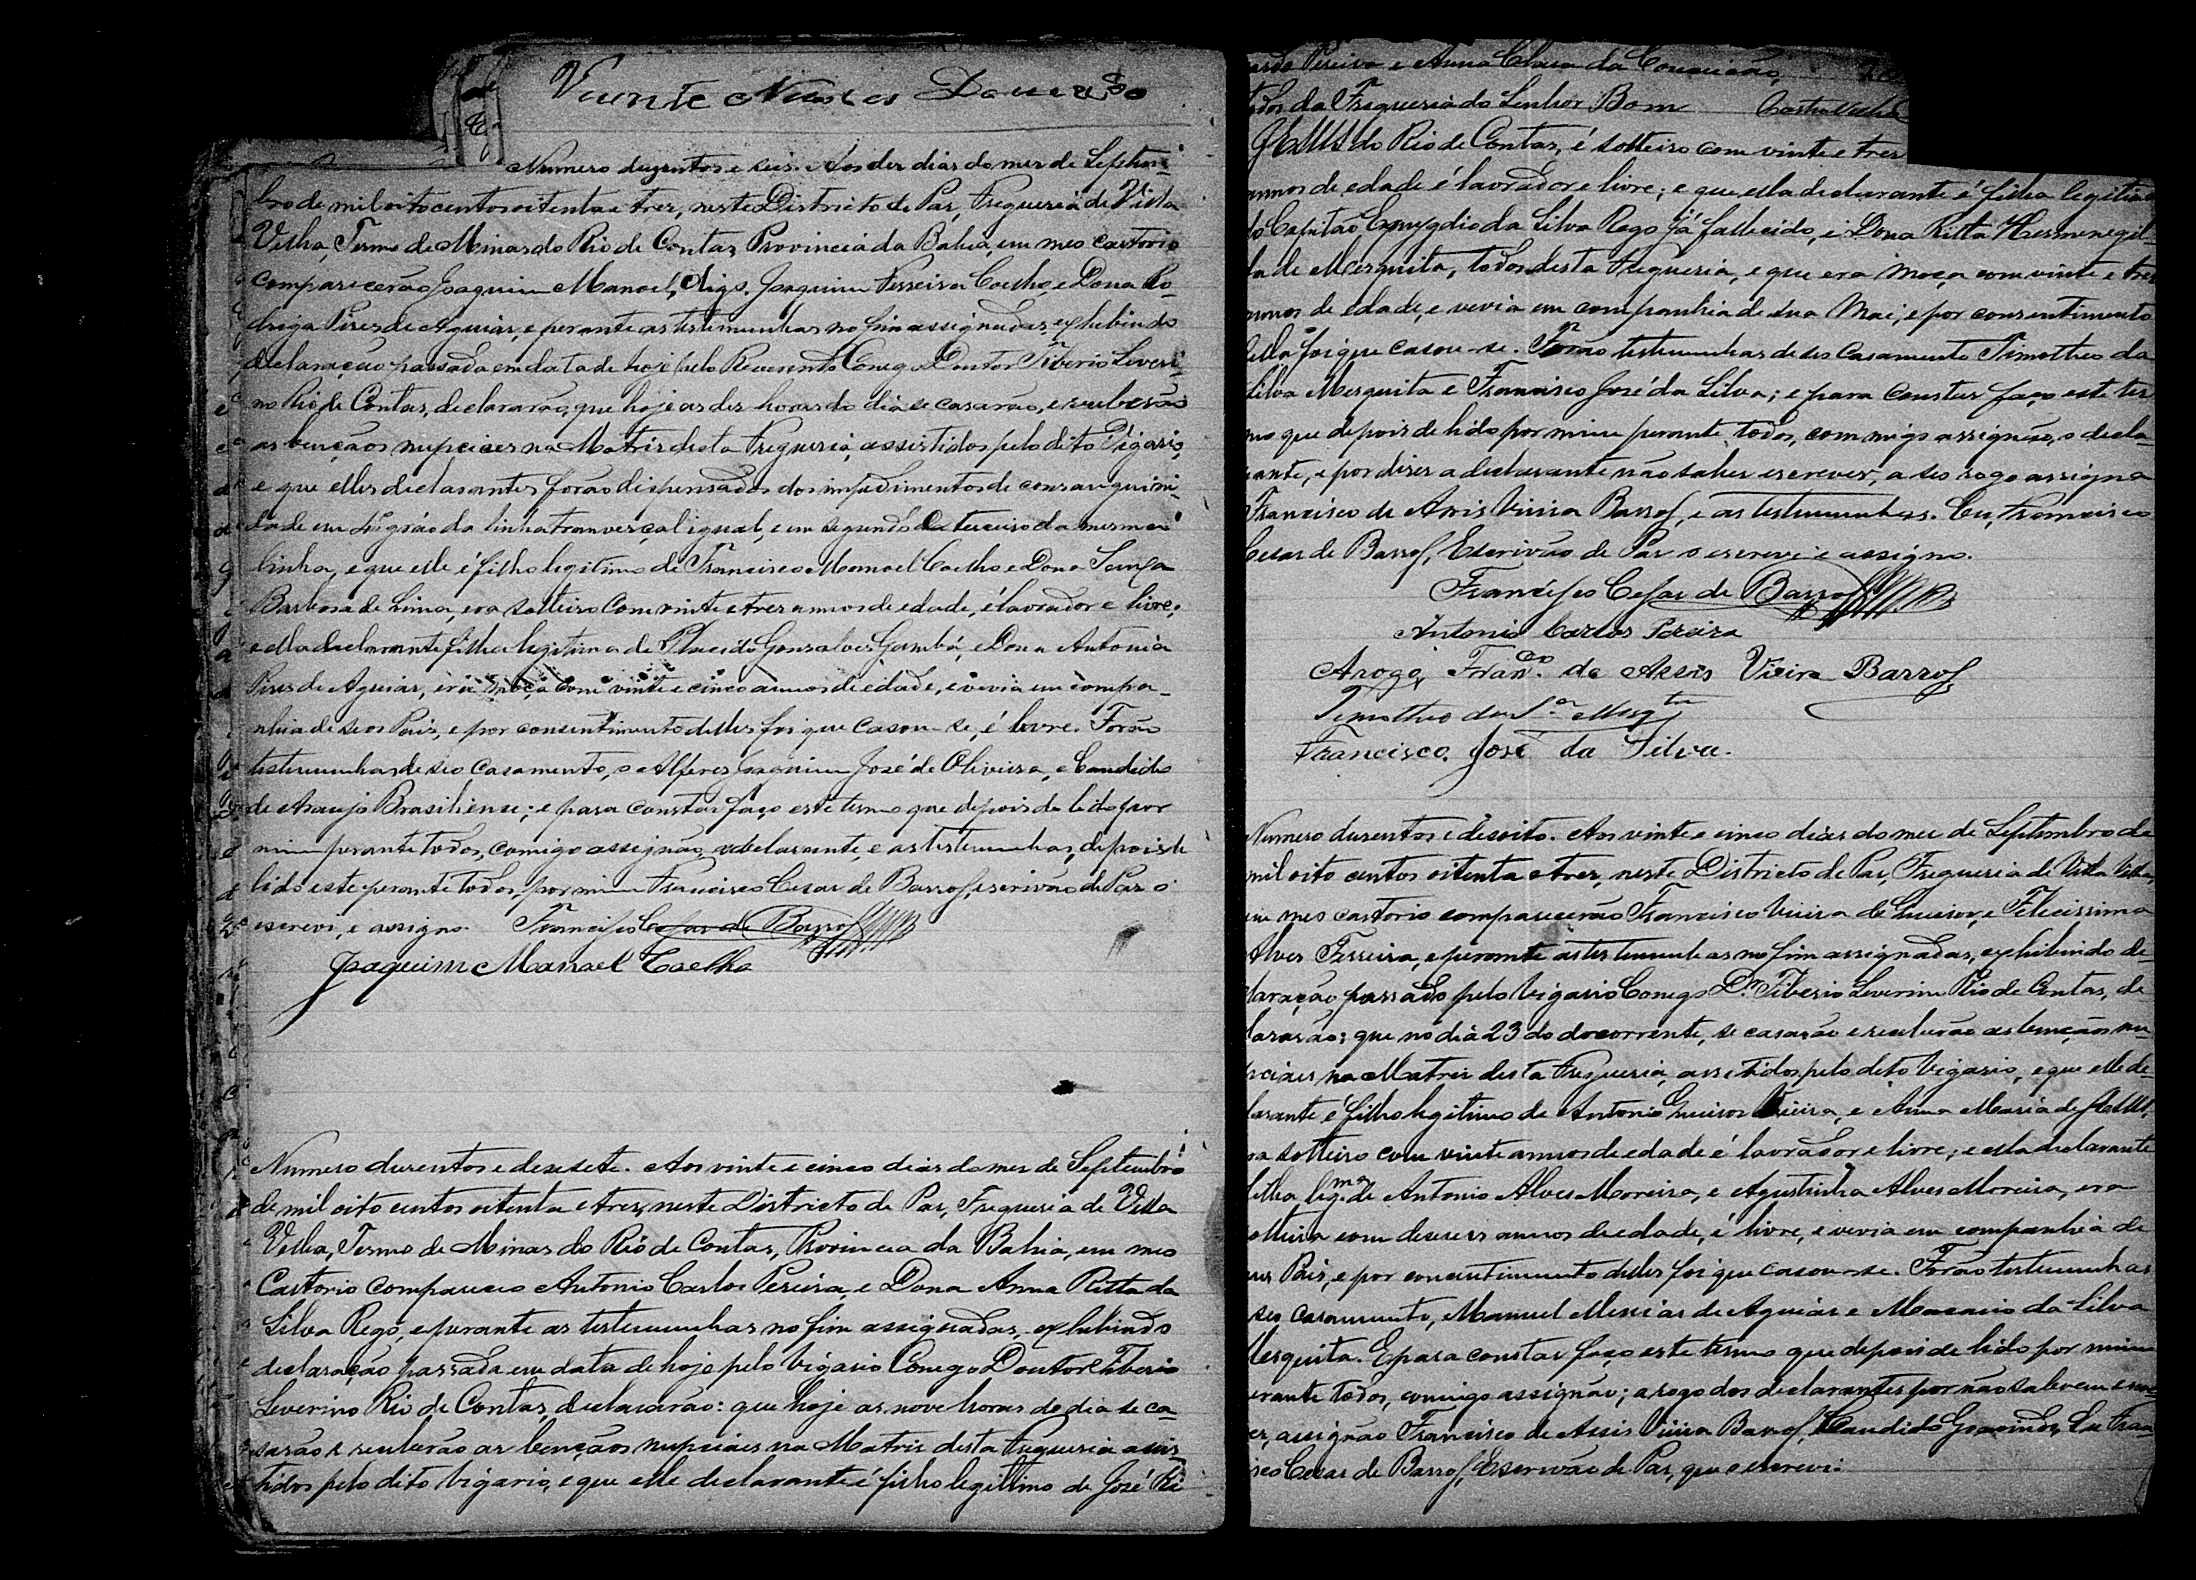 Numero duzentos e seis. Aos dez dias do mez de Septem-
bro de mil oito centos oitenta e tres, neste Districto de Paz, Freguesia de Villa
Velha, Termo de Minas do Rio de Contas, Provincia da Bahia, em meo cartorio
comparecerão Joaquim Manoel, digo, Joaquim Ferreira Coelho, e Dona
Pires de Aguiar, e perante as testemunhas no fim assignadas, exhibindo
declaração passada em data de hoje pelo Reverendo Conego Doutor Tiberio Severi-
no Rio de Contas, declararão, que hoje as dez horas do dia se casarão, e receberão
as benções nupciaes na Matriz desta Freguesia, assistidos pelo dito Vigario,
e que elles declarantes forão dispensados dos impedimentos de consanguini-
dade em gráo da linha tranverçal igual, e em segundo da mesma
linha, e que elle é filho legitimo de Francisco Manoel Coelho e Dona
Barbosa de Lima, era solteiro com vinte e tres annos de edade, é lavrador e livre;
e ella declarante filha legitima de Placido Gonsalves Gambá, e Dona Antonia
Pires de Aguiar, era moça com vinte e cinco annos de edade, e vevia em compa-
nhia de seos Pais, e por consentimento delles foi que casou-se, é livre. Forão
testemunhas de seo casamento, o Alferes Joaquim José de Oliveira, e Candido
de Araujo Brasiliense; e para constar faço este termo que depois de lido por
mim perante todos, comigo assignão, o declarante, e as testemunhas, depois de
lido este perante todos, por mim Francisco Cesar de Barros, escrivão de Paz o
escrevi, e assigno. Francisco Cesar de Barros
Joaquim Manoel Coelho
Numero duzentos e desesete. Aos vinte e cinco dias do mez de Septembro
de mil oito centos oitenta e tres, neste Districto de Paz, Freguesia de Villa
Velha, Termo de Minas do Rio de Contas, Provincia da Bahia, em meo
Cartorio compareceo Antonio Carlos Pereira, e Dona Anna Ritta da
Silva Rego, e perante as testemunhas no fim assignadas, exhibindo
declaração passada em data de hoje pelo Vigario Conego Doutor Tiberio
Severino Rio de Contas, declararão: que hoje as nove horas do dia se ca-
sarão e receberão as benções nupciaes na Matriz desta Freguesia assis-
tidos pelo dito Vigario, e que elle declarante é filho legittimo de José Ri
cardo Pereira e Anna Clara da Conceição,
todos da Freguesia do Senhor Bom
JESUS do Rio de Contas, é solteiro com vinte e tres
annos de edade é lavrador e livre; e que ella declarante é filha legitima
do Capitão Egmygdio da Silva Rego já fallecido, e Dona Ritta Hermenegil-
da de Mesquita, todos desta Freguesia, e que era moça com vinte e tres
annos de edade, e vevia em companhia de sua Mai, e por consentimento
della foi que casou-se. Forão testemunhas de seo Casamento Timotheo da
Silva Mesquita e Francisco José da Silva; e para constar faço este ter
mo que depois de lido por mim perante todos, commigo assignão, o decla-
rante, e por dizer a declarante não saber escrever, a seo rogo assigna
Francisco de Assis Vieira Barros, e as testemunhas. Eu, Francisco
Cesar de Barros, Escrivão de Paz o escrevi e assigno.
Francisco Cesar de Barros
Antonio Carlos Pereira
Arogo, Franco. de Assis Vieira Barros
Timotheo da Sa. Mesqta
Francisco José da Silva.
Numero duzentos e desoito. Aos vinte e cinco dias do mez de Septembro de
mil oito centos oitenta e tres, neste Districto de Paz, Freguesia de Villa Velha,
em meo cartorio comparecerão Francisco Vieira de, e Felicissima
Alves Ferreira, e perante as testemunhas no fim assignadas, exhibindo de-
claração passado pelo Vigario Conego Dr. Tiberio Severino Rio de Contas, de
clararão: que no dia 23 do do corrente, se casarão e receberão as benções nu
pciaes na Matriz desta Freguesia, assistidos pelo dito Vigario, e que elle de-
clarante é filho legitimo de Antonio Vieira, e Anna Maria de JESUS,
era solteiro com vinte annos de edade é lavrador e livre; e ella declarante
filha legma. de Antonio Alves Moreira, e Agustinha Alves Moreira, era
solteira com deseseis annos de edade, é livre, e vevia em companhia de
seus Pais, e por concentimento delles foi que casou-se. Forão testemunhas
seo casamento, Manuel Messias de Aguiar e Macario da Silva
Mesquita. E para constar faço este termo que depois de lido por mim
perante todos, comigo assignão; a rogo dos declarantes por não saberem escre
ver, assignão Francisco de Assis Vieira Barros, Candido. Eu Fran
cisco Cesar de Barros, Escrivão de Paz, que o escrevi.